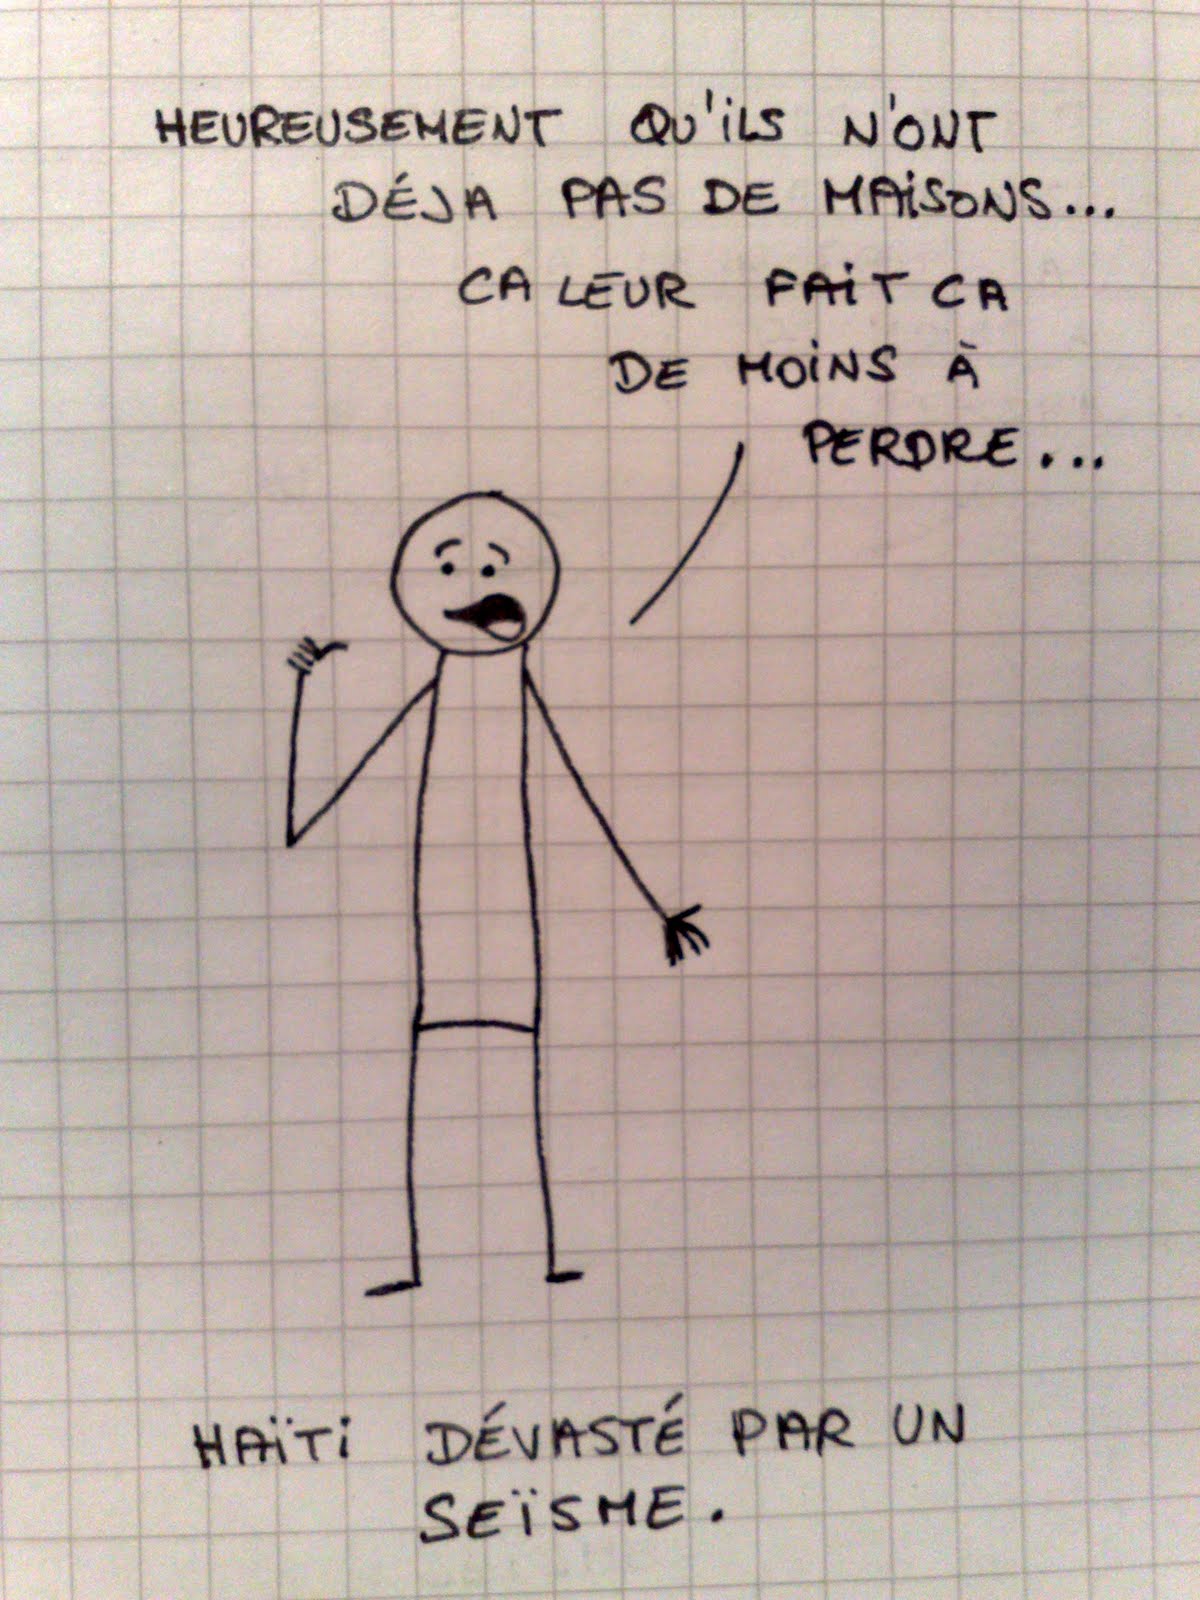 HEUREUSEMENT QU'ILS N'ONT
DÉJA PAS DE MAISONS...
CA LEUR FAIT CA
DE MOINS À
PERDRE...
HAÏTI DÉVASTÉ PAR UN
SEÏSME.